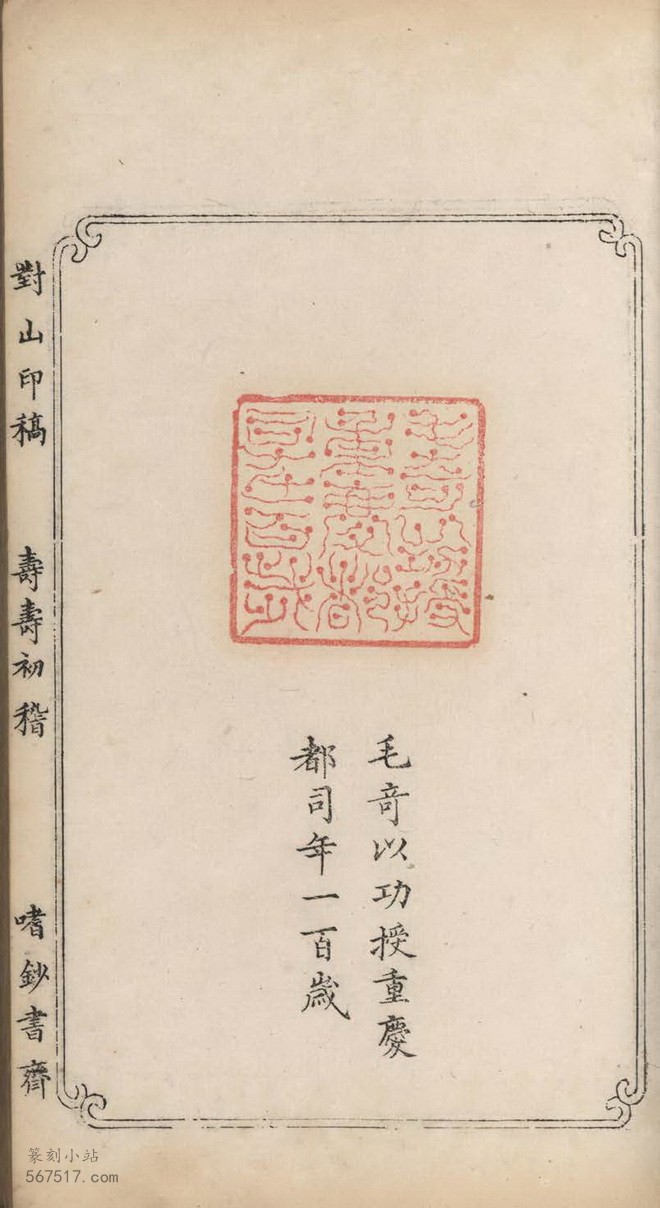 毛竒以功授重慶
都司年一百歲
對山印稿 壽壽初稽 嗜鈔書齋
篆刻小站
567517.com